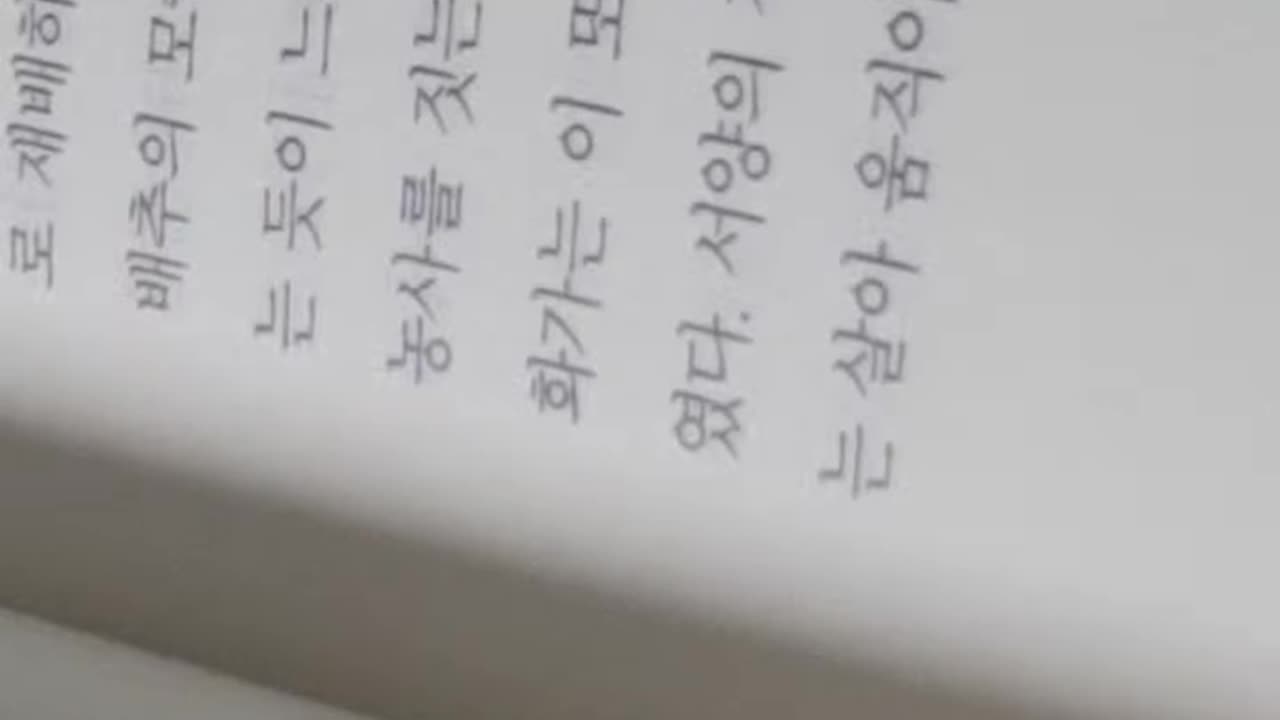 로 재배하
배추의 모
는 듯이 느
농사를 짓는
화가는 이 또
였다. 서양의
는 살아 움직이